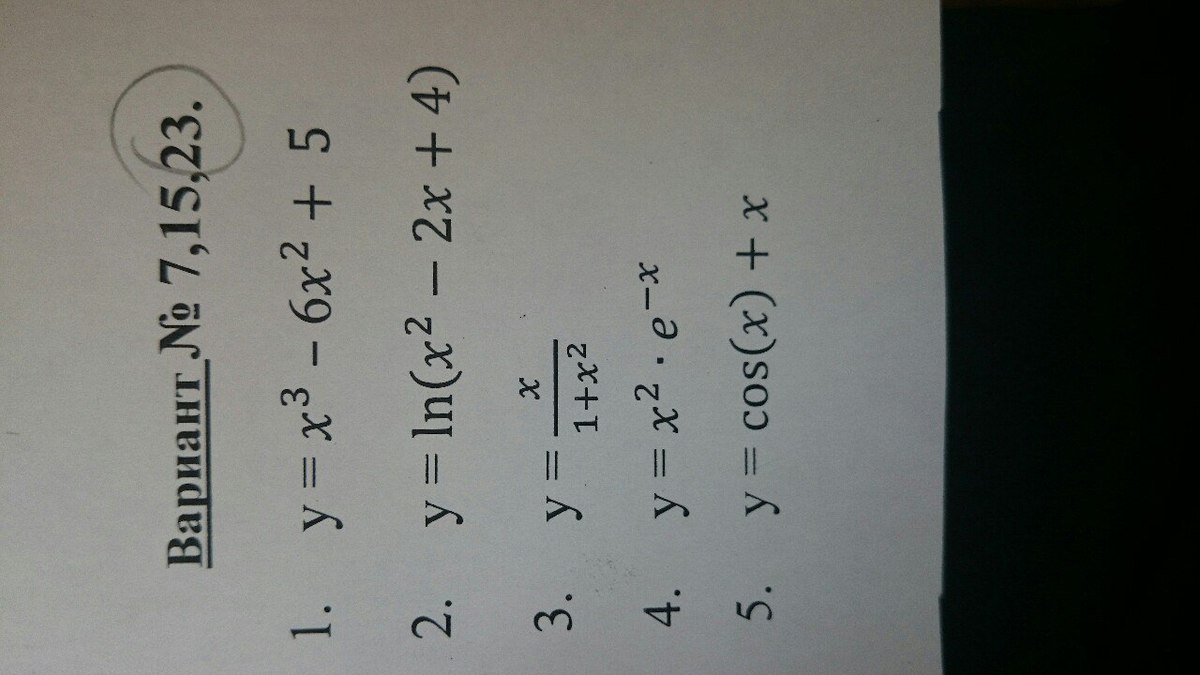 Вариант № 7,15,23.
1. y = x³ − 6x² + 5
2. y = ln(x² − 2x + 4)
3. y = x/(1+x²)
4. y = x² · e⁻ˣ
5. y = cos(x) + x